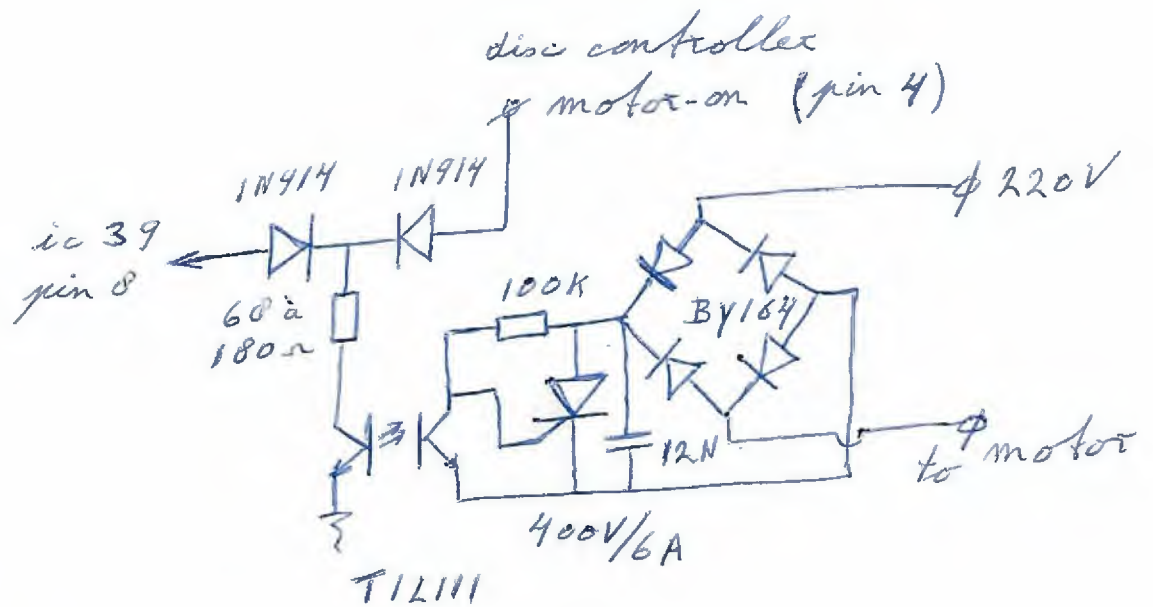 disc controller
motor-on (pin 4)
1N914
1N914
220V
ic 39
pin 8
100K
60 à
180Ω
BY164
12N
to motor
400V/6A
TIL111